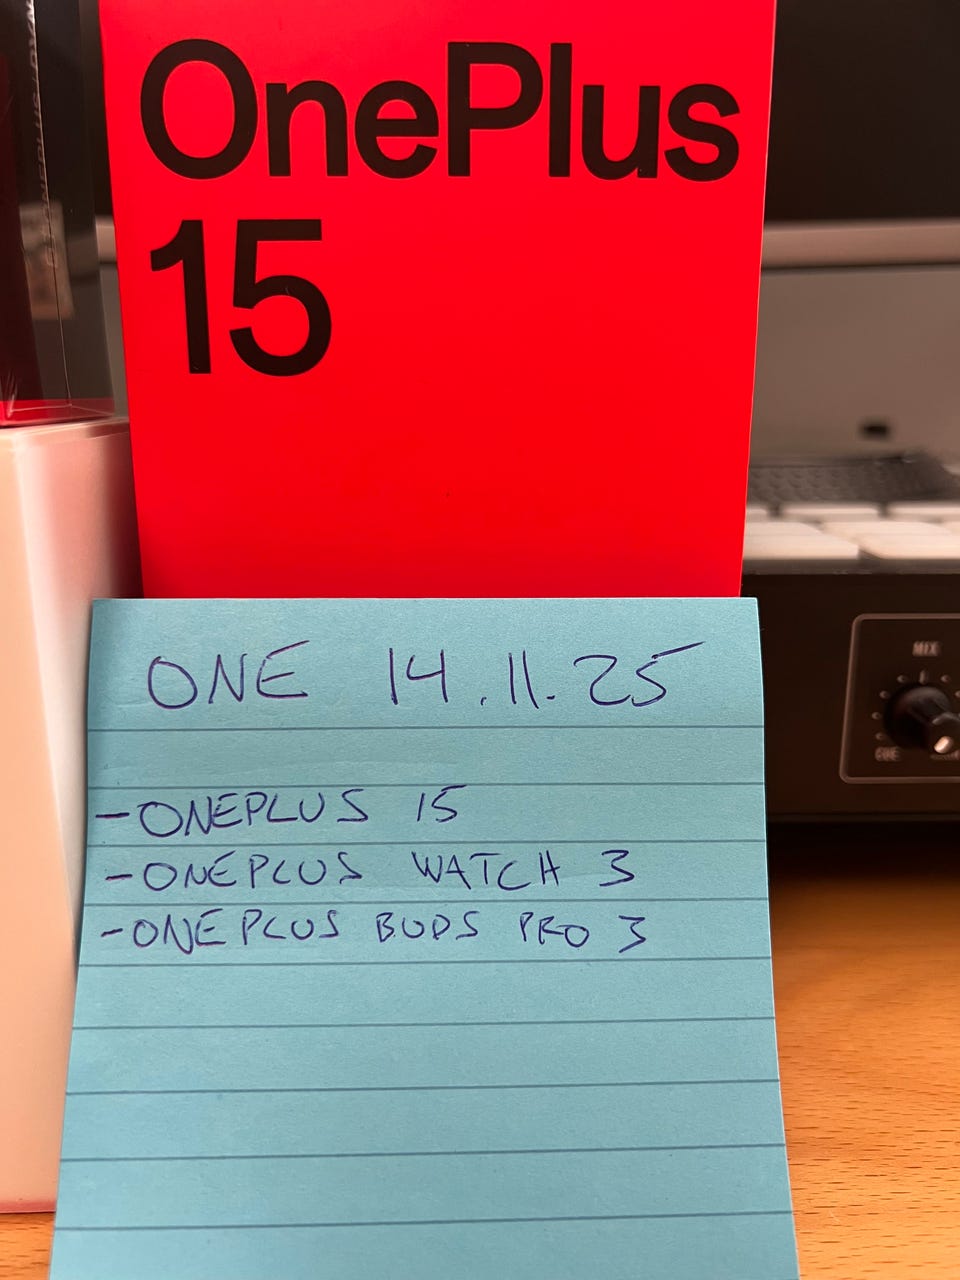 OnePlus
15
MIX
CUE
ONE 14.11.25
-ONEPLUS 15
-ONEPLUS WATCH 3
-ONEPLUS BUDS PRO 3